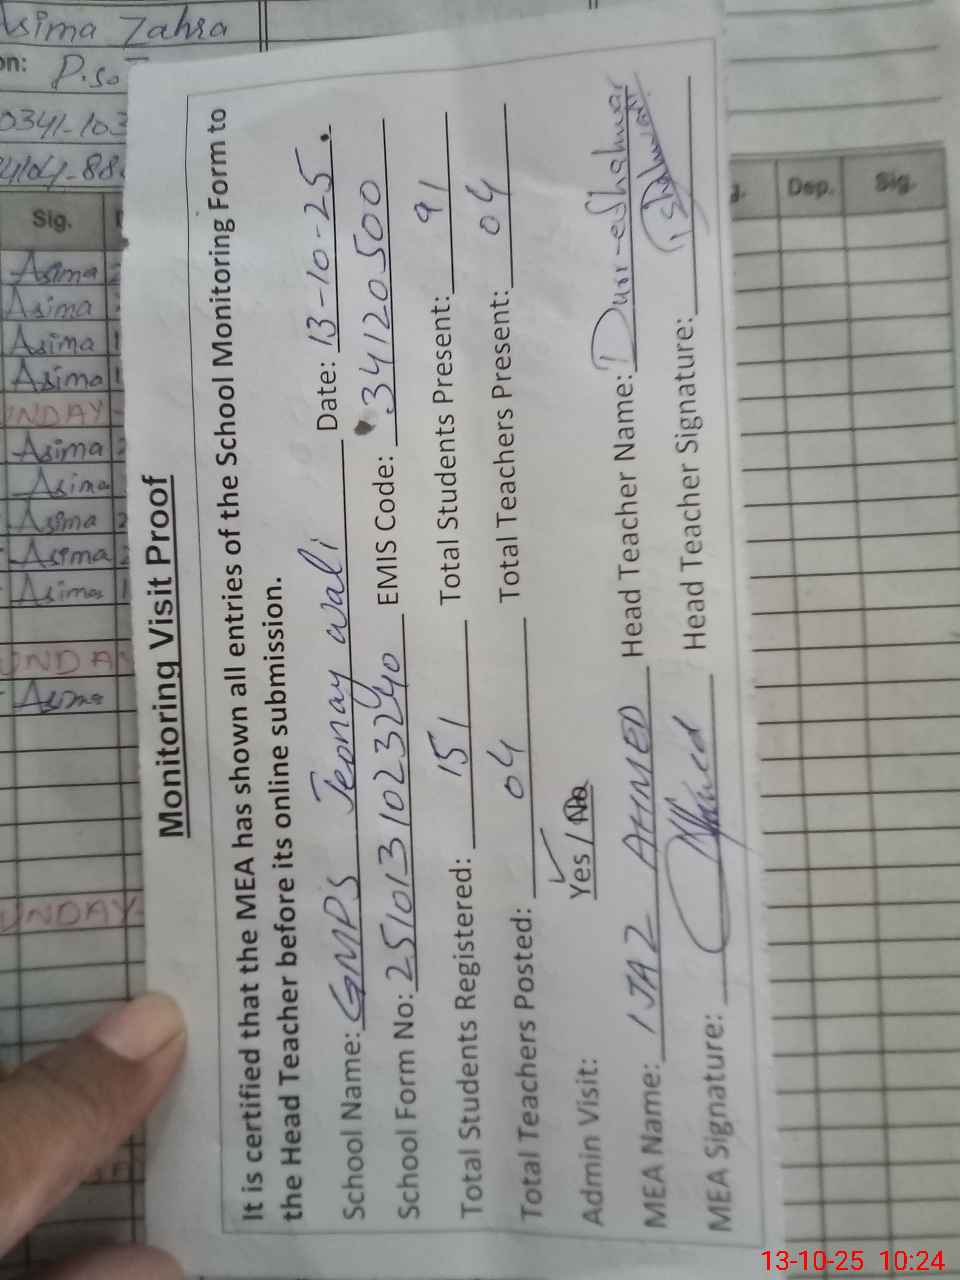 Monitoring Visit Proof
It is certified that the MEA has shown all entries of the School Monitoring Form to
the Head Teacher before its online submission.
School Name: GMPS Jeonay wali Date: 13-10-25.
School Form No: 2510131023240 EMIS Code: 34120500
Total Students Registered: 151 Total Students Present: 91
Total Teachers Posted: 04 Total Teachers Present: 04
Admin Visit: Yes / No
MEA Name: IJAZ AHMED Head Teacher Name: Durr-eShahwar
MEA Signature: Head Teacher Signature:
Asima Zahra
on: P.S.T
0341-103
4104-88
Sig.
Asima
Asima
Asima
Asima
UNDAY
Asima
Asima
Asima
Asima
Asima
UNDAY
Asima
UNDAY
Dep. Sig.
13-10-25 10:24